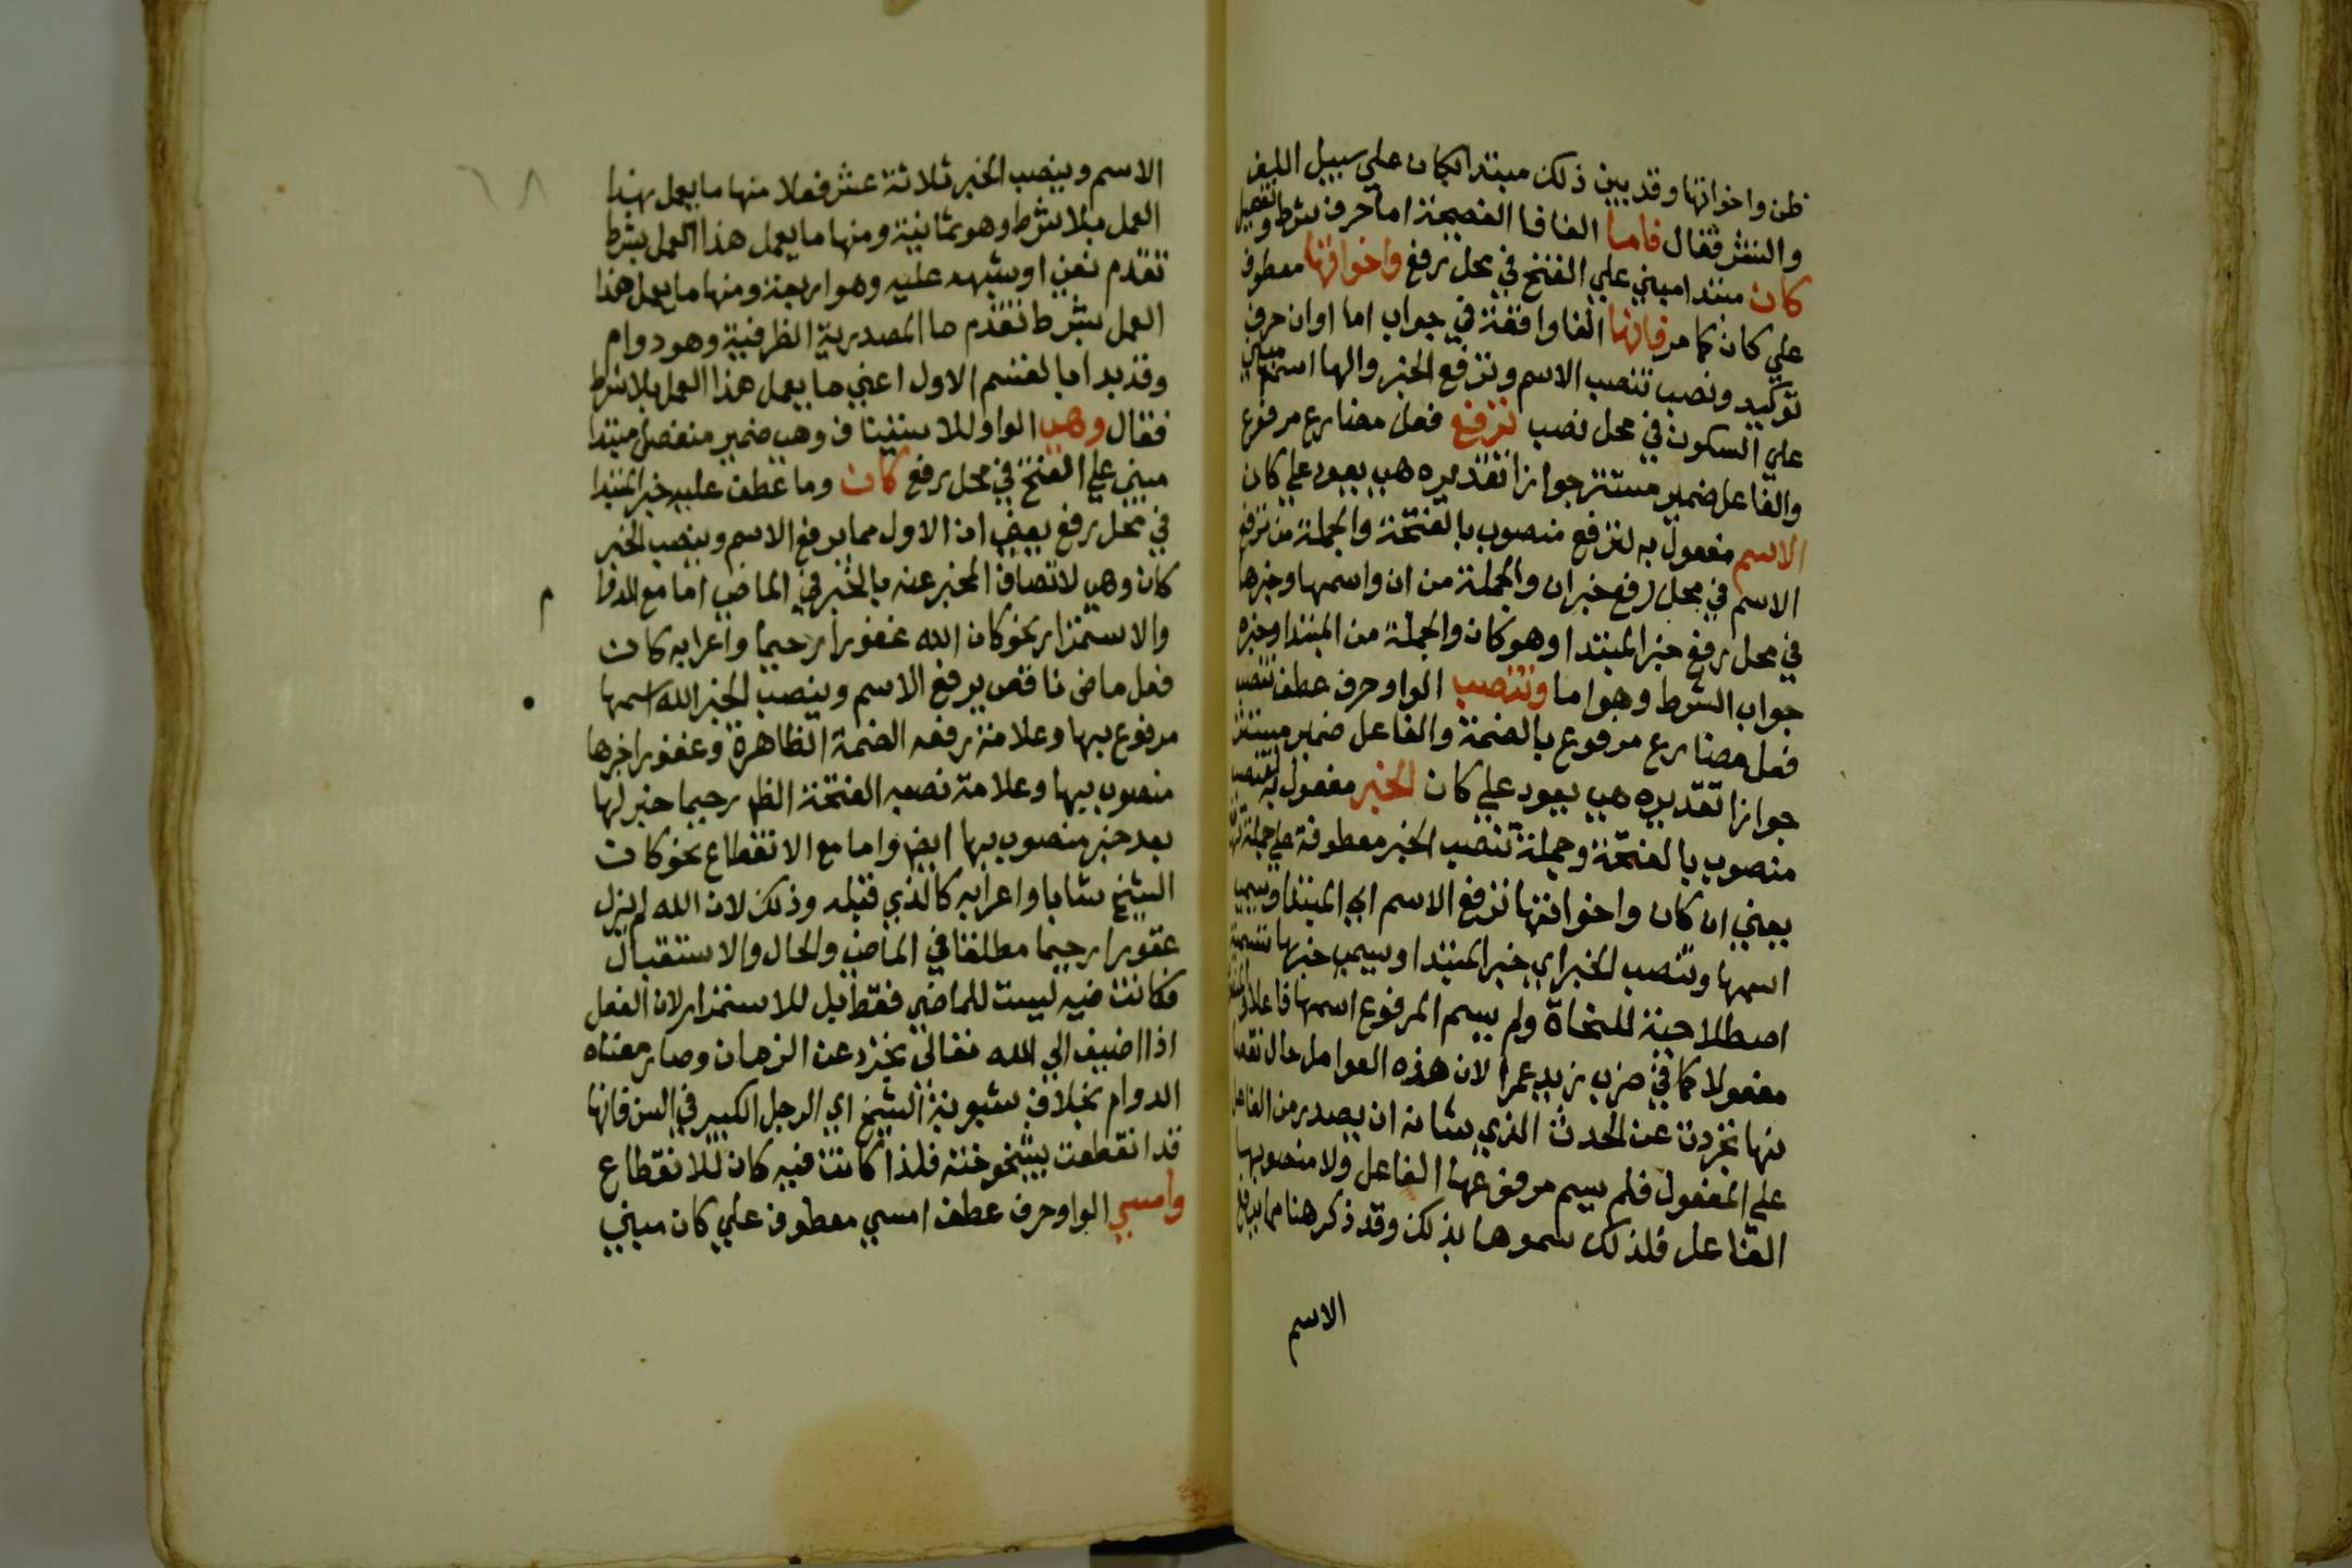 ظن واخواتها وقد بين ذلك مبتدا بكان علي سبيل اللف
والنشر فقال فاما الفا فا الفصيحة اما حرف شرط وتفصيل
كان مبتدا مبني علي الفتح في محل رفع واخواتها معطوف
علي كان كما مر فانها الفا واقعة في جواب اما وان حرف
توكيد ونصب تنصب الاسم وترفع الخبر والها اسمها مبني
علي السكون في محل نصب ترفع فعل مضارع مرفوع
والفاعل ضمير مستتر جوازا تقديره هي يعود علي كان
الاسم مفعول به لترفع منصوب بالفتحة والجملة من ترفع
الاسم في محل رفع خبر ان والجملة من ان واسمها وخبرها
في محل رفع خبر المبتدا وهو كان والجملة من المبتدا وخبره
جواب الشرط وهو اما وتنصب الواو حرف عطف تنصب
فعل مضارع مرفوع بالضمة والفاعل ضمير مستتر
جوازا تقديره هي يعود علي كان الخبر مفعول به لتنصب
منصوب بالفتحة وجملة تنصب الخبر معطوفة علي جملة ترفع
يعني ان كان واخواتها ترفع الاسم اي المبتدا ويسمي
اسمها وتنصب الخبر اي خبر المبتدا ويسمي خبرها تسمية
اصطلاحية للنحاة ولم يسم المرفوع اسمها فاعلا والمنصوب
مفعولا كما في ضرب زيد عمرا لان هذه العوامل حال نقصا
نها تجردت عن الحدث الذي شانه ان يصدر من الفاعل
علي المفعول فلم يسم مرفوعها الفاعل ولا منصوبها
الفاعل فلذلك سموها بذلك وقد ذكر هنا مما يرفع
الاسم
٦٨
الاسم وينصب الخبر ثلاثة عشر فعلا منها ما يعمل بهذا
العمل بلا شرط وهو ثمانية ومنها ما يعمل هذا العمل بشرط
تقدم نفي او شبهه عليه وهو اربعة ومنها ما يعمل هذا
العمل بشرط تقدم ما المصدرية الظرفية وهو دوام
وقد بدا بالقسم الاول اعني ما يعمل هذا العمل بلا شرط
فقال وهي الواو للاستيناف وهي ضمير منفصل مبتدا
مبني علي الفتح في محل رفع كان وما عطف عليه خبر المبتدا
في محل رفع يعني ان الاول مما يرفع الاسم وينصب الخبر
كان وهي لاتصاف المخبر عنه بالخبر في الماضي اما مع الدوا م
والاستمرار نحو كان الله غفورا رحيما واعرابه كان
فعل ماض ناقص يرفع الاسم وينصب الخبر الله اسمها
مرفوع بها وعلامة رفعه الضمة الظاهرة وغفورا خبرها
منصوب بها وعلامة نصبه الفتحة الظ رحيما خبر لها
بعد خبر منصوب بها ايض واما مع الانقطاع نحو كان
الشيخ شابا واعرابه كالذي قبله وذلك لان الله لم يزل
غفورا رحيما مطلقا في الماضي والحال والاستقبال
فكانت فيه ليست للماضي فقط بل للاستمرار لان الفعل
اذا اضيف الي الله تعالى تجرد عن الزمان وصار معناه
الدوام بخلاف شبوبية الشيخ اي الرجل الكبير في السن فانها
قد انقطعت بشيخوخته فلذا كانت فيه كان للانقطاع
وامسي الواو حرف عطف امسي معطوف علي كان مبني